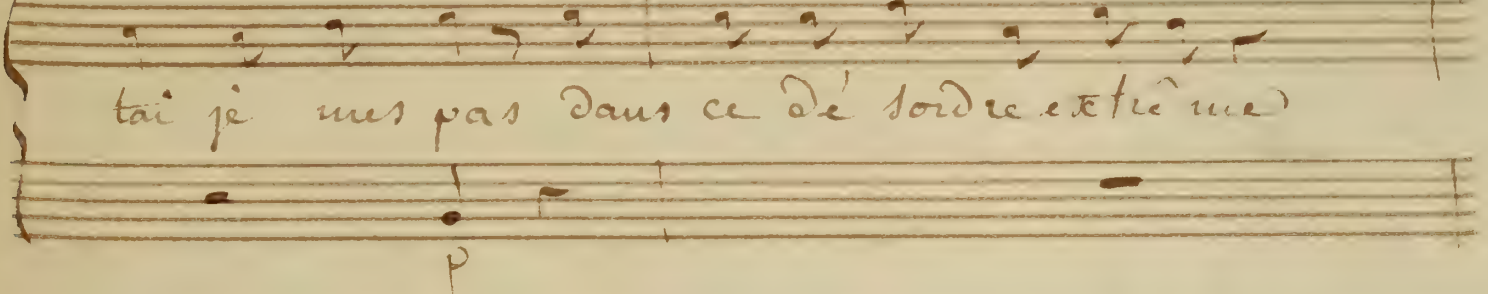 tai je mes pas dans ce dé sordre extrê me
p